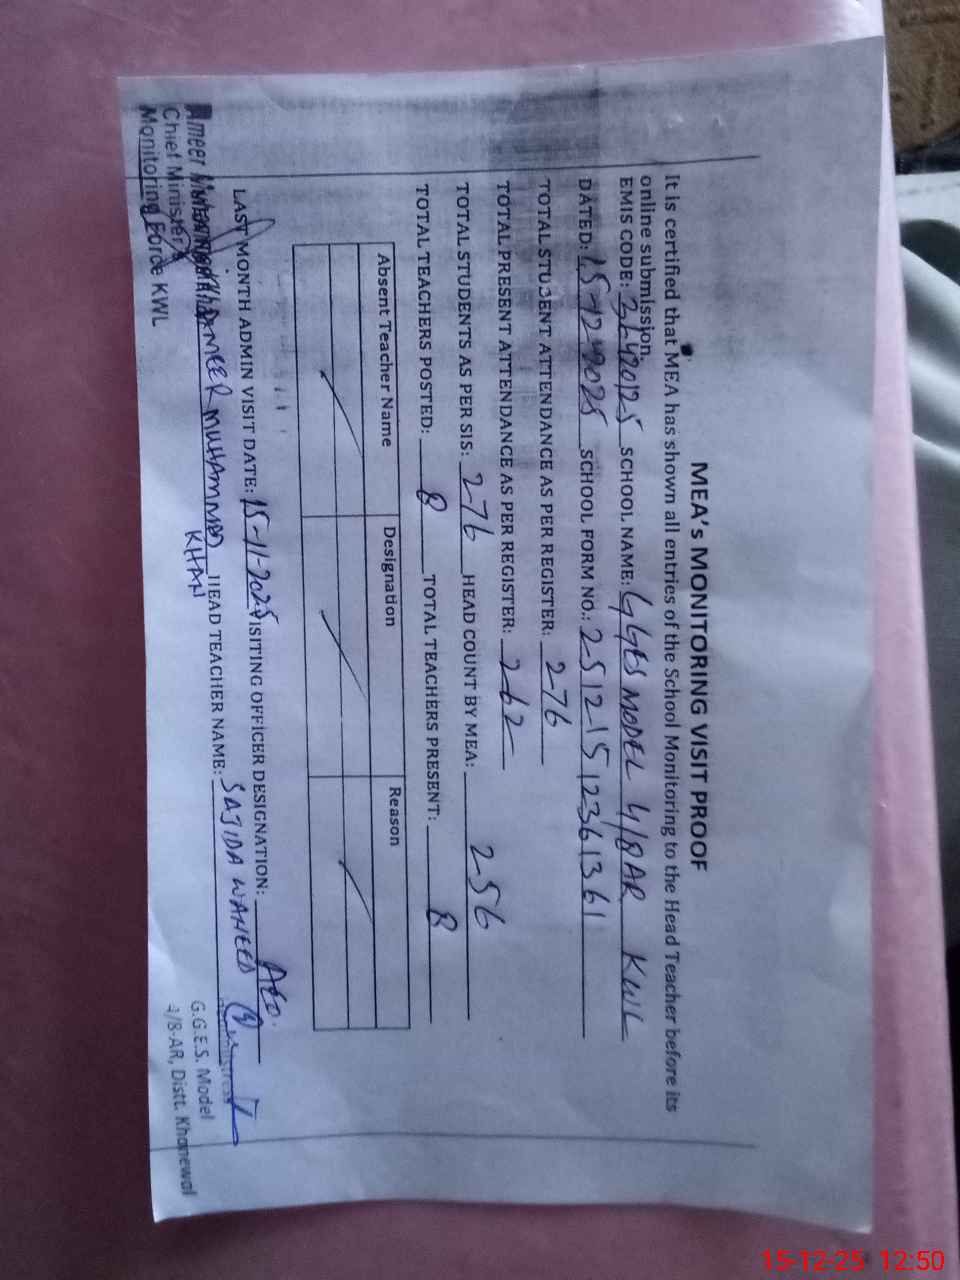 MEA's MONITORING VISIT PROOF
It is certified that MEA has shown all entries of the School Monitoring to the Head Teacher before its
online submission.
EMIS CODE: 36420125 SCHOOL NAME: GGES MODEL 4/8AR KWL
DATED: 15-12-2025 SCHOOL FORM NO.: 2512-1512361361
TOTAL STUDENT ATTENDANCE AS PER REGISTER: 276
TOTAL PRESENT ATTENDANCE AS PER REGISTER: 262
TOTAL STUDENTS AS PER SIS: 276 HEAD COUNT BY MEA: 256
TOTAL TEACHERS POSTED: 8 TOTAL TEACHERS PRESENT: 8
Absent Teacher Name Designation Reason
LAST MONTH ADMIN VISIT DATE: 15-11-2025 VISITING OFFICER DESIGNATION: AEO.
AMEER MUHAMMAD KHAN HEAD TEACHER NAME: SAJIDA WAHEED
Ameer
Chief Minister's
Monitoring Force KWL
Headmistress
G.G.E.S. Model
4/8-AR, Distt. Khanewal
15-12-25 12:50